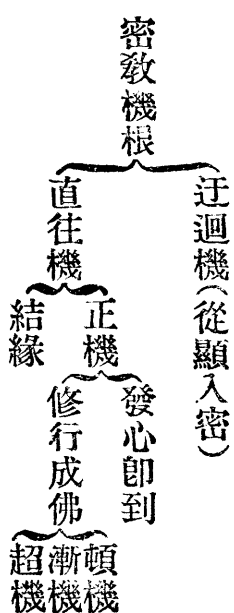 密教機根
迂迴機(從顯入密)
直往機
正機
發心卽到
修行成佛
頓機
漸機
超機
結緣